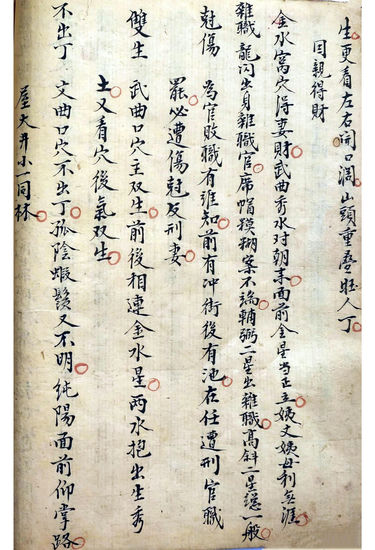 生更看左右開口濶山頭重疊旺人丁
因親得財
金水窩穴得妻財武曲秀水对朝來面前金星当正立姨丈姨母利無涯
雜職 龍閃出身雜職官席帽模糊案不端輔弼二星出雜職高斜二星總一般
尅傷 為官敗職有誰知前有冲街後有池在任遭刑官職
罷必遭傷尅反刑妻
雙生 武曲口穴主双生前後相連金水星两水抱出生秀
土又看穴後氣双生
不出丁 文曲口穴不出丁孤陰蝦鬚又不明純陽面前仰掌路
屋大井小一同林